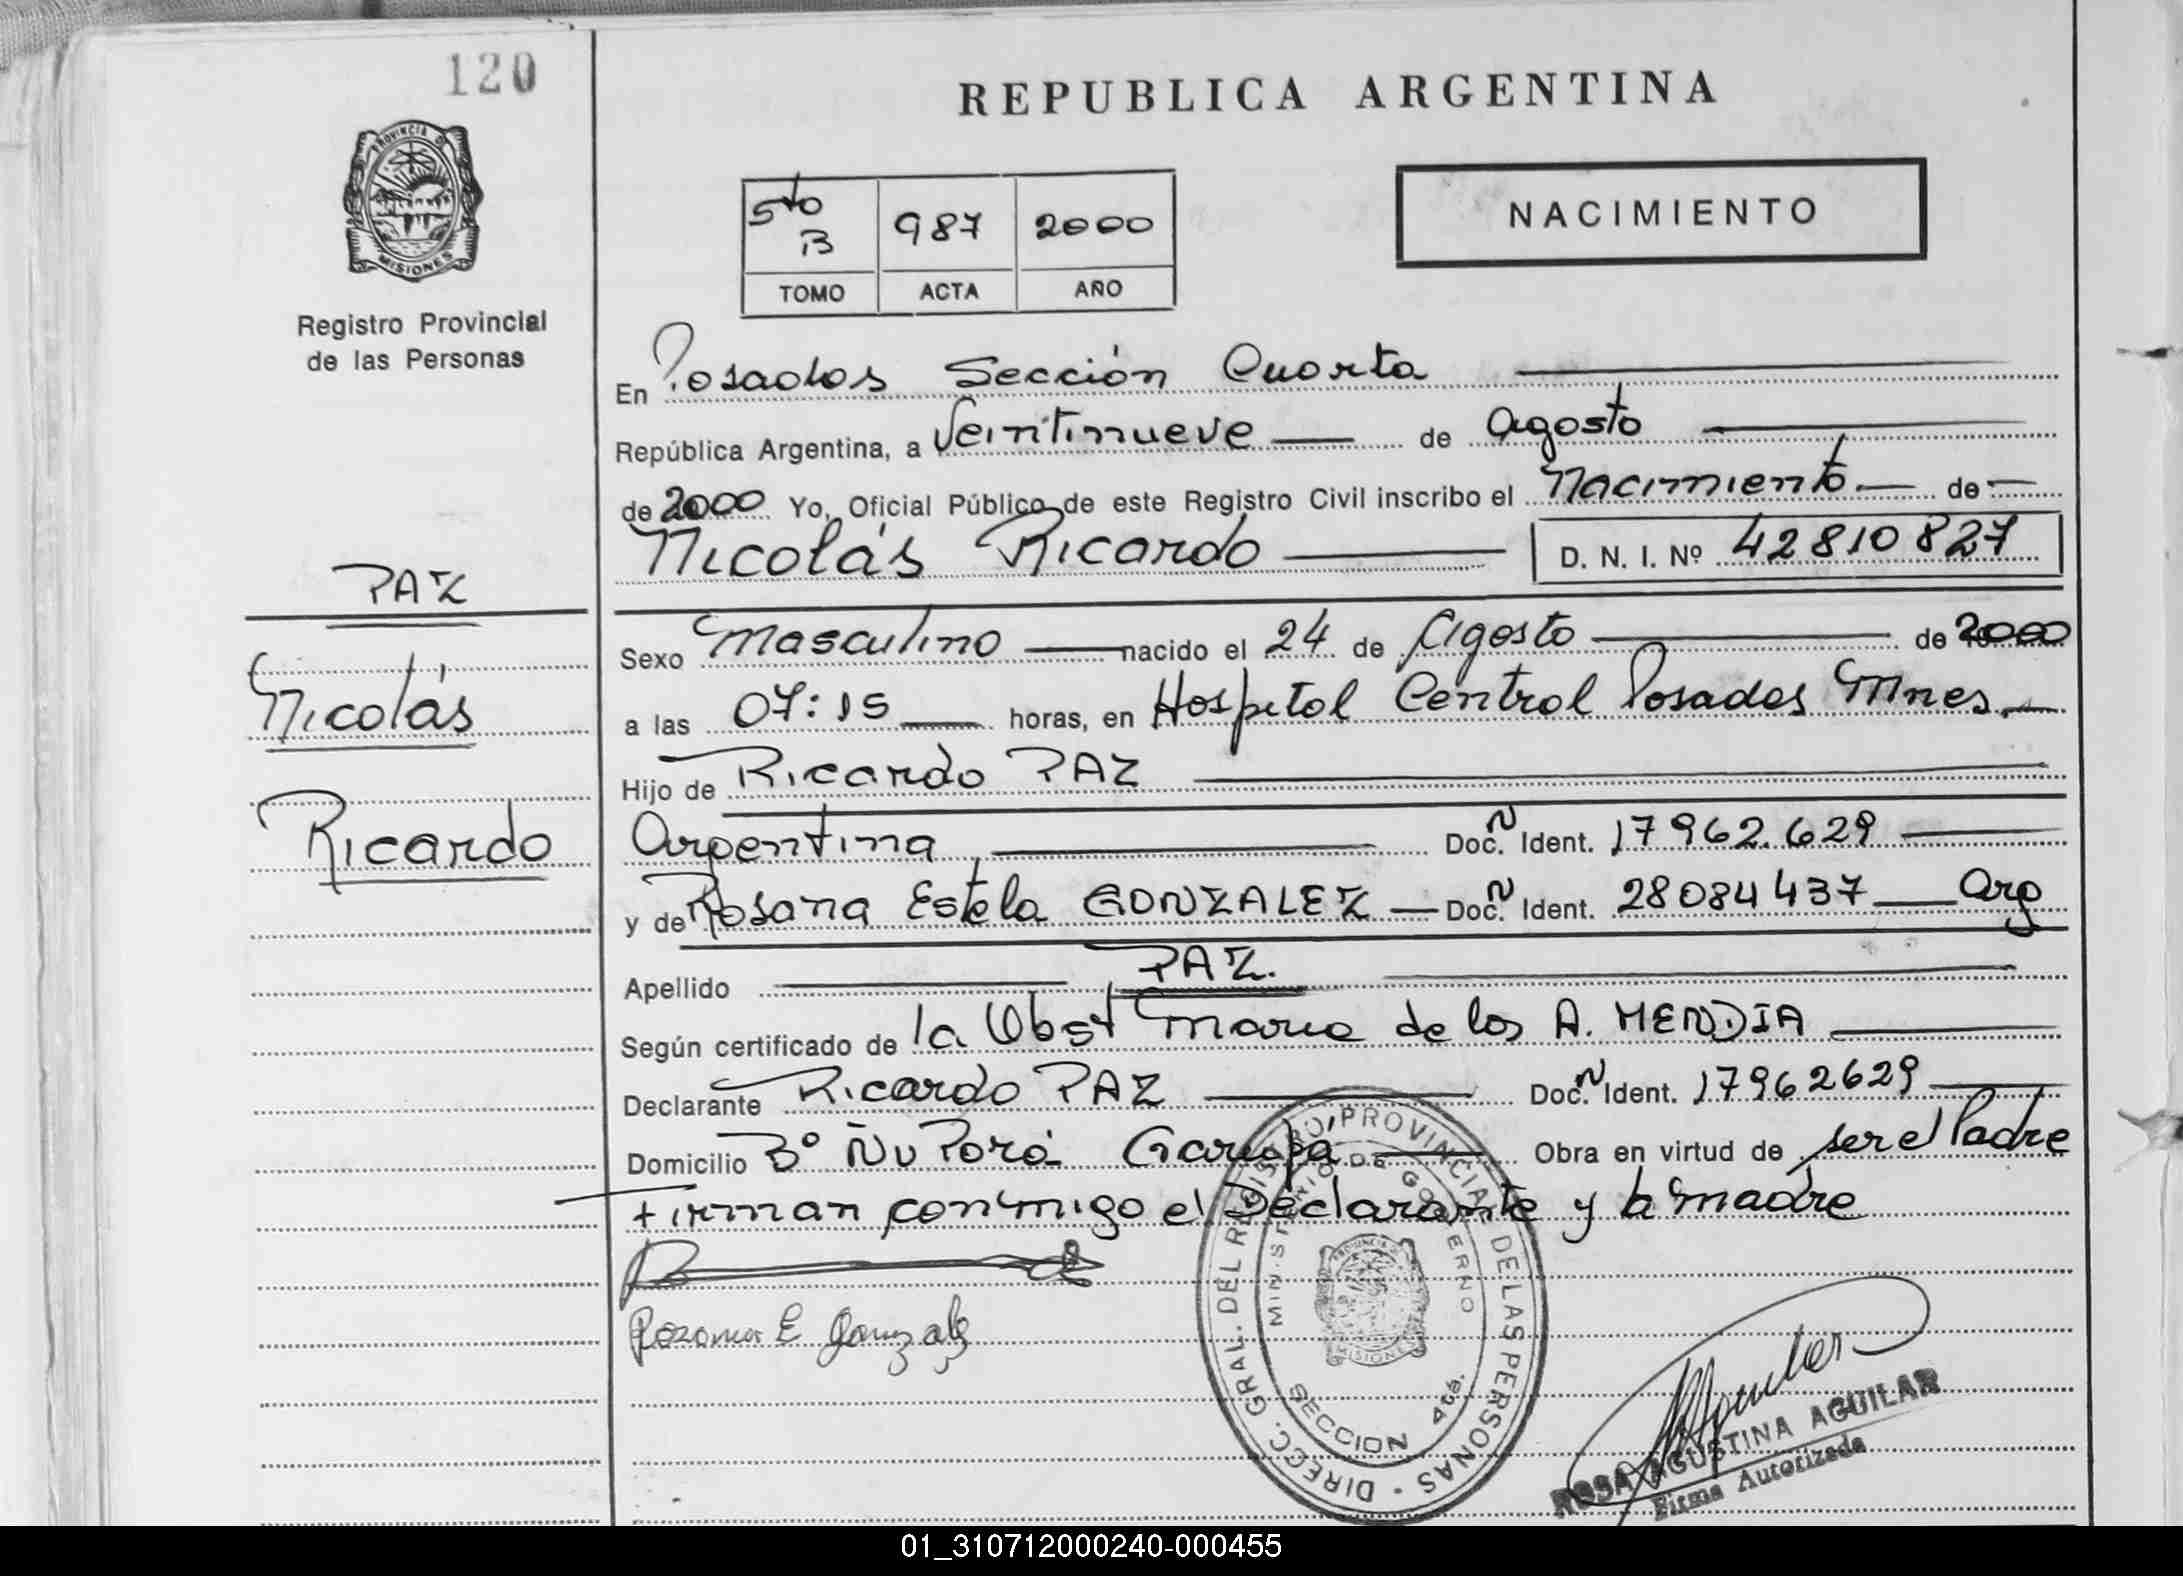 120
REPUBLICA ARGENTINA
PROVINCIA D
MISIONES
Registro Provincial
de las Personas
5to B 987 2000
TOMO ACTA AÑO
NACIMIENTO
En Posadas Sección Cuarta
República Argentina, a Veintinueve de Agosto
de 2000 Yo, Oficial Público de este Registro Civil inscribo el Nacimiento de
Nicolás Ricardo D. N. I. Nº 42810827
PAZ
Nicolás
Ricardo
Sexo Masculino nacido el 24 de Agosto de 2000
a las 07:15 horas, en Hospital Central Posadas Mnes.
Hijo de Ricardo PAZ
Argentina Doc. N Ident. 17962.629
y de Rosana Estela GONZALEZ Doc. N Ident. 28084437 Arg
Apellido PAZ.
Según certificado de la Obst Maria de los A. MENDIA
Declarante Ricardo PAZ Doc. N Ident. 17962629
Domicilio Bº Ñu Porá Garupa Obra en virtud de ser el Padre
Firman conmigo el Declarante y la madre
Rozana E Gonzalez
DIRECC. GRAL. DEL REGISTRO PROVINCIAL DE LAS PERSONAS
MINISTERIO DE GOBIERNO
PROVINCIA D
MISIONES
SECCION 4ta.
ROSA AGUSTINA AGUILAR
Firma Autorizada
01_310712000240-000455